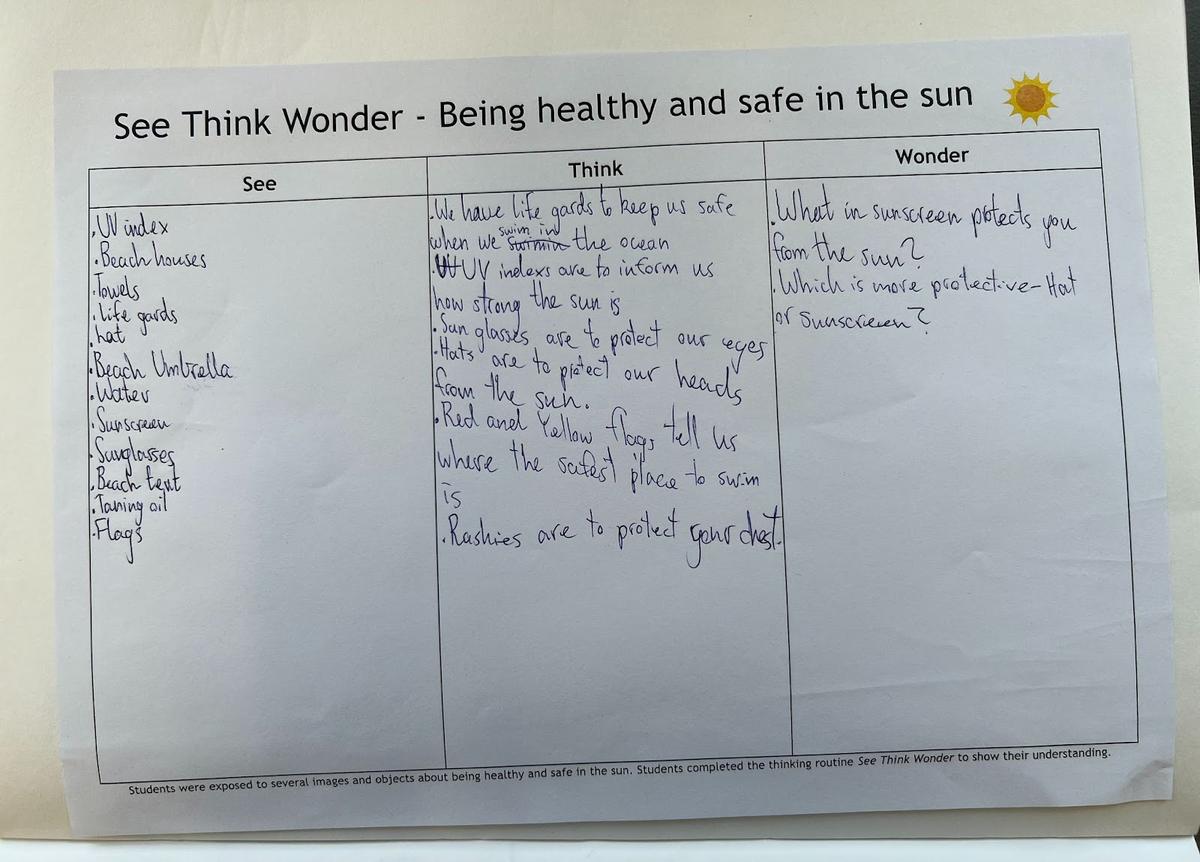 See Think Wonder - Being healthy and safe in the sun
See
.UV index
.Beach houses
.Towels
.life gards
.hat
.Beach Umbrella
.Water
.Sunscreen
.Sunglasses
.Beach tent
.Taning oil
.Flags
Think
.We have life gards to keep us safe
when we swim in the ocean
.UV indexs are to inform us
how strong the sun is
.Sun glasses are to protect our eyes
.Hats are to protect our heads
from the sun.
.Red and Yellow flags tell us
where the safest place to swim
is
.Rashies are to protect your chest.
Wonder
.What in sunscreen protects you
from the sun?
.Which is more protective-Hat
or Sunscreen?
Students were exposed to several images and objects about being healthy and safe in the sun. Students completed the thinking routine See Think Wonder to show their understanding.